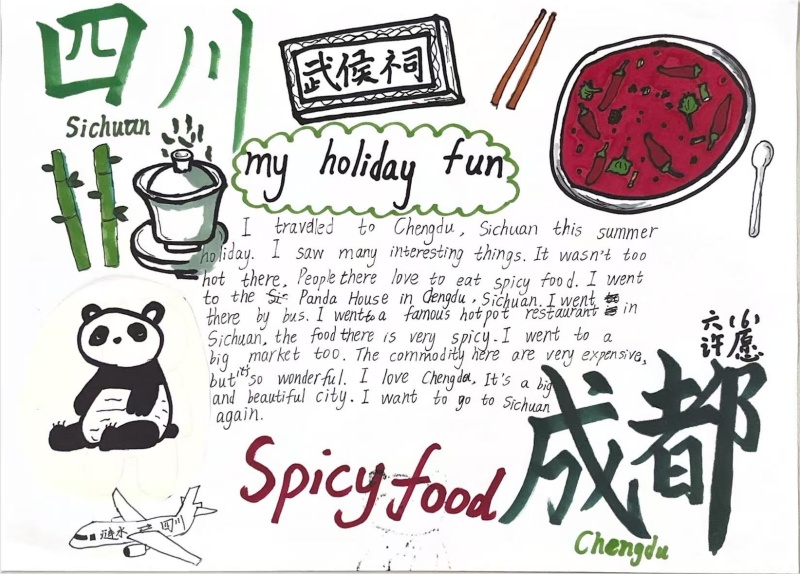 四川
Sichuan
武侯祠
my holiday fun
I travelled to Chengdu, Sichuan this summer
holiday. I saw many interesting things. It wasn't too
hot there. People there love to eat spicy food. I went
to the Panda House in Chengdu, Sichuan. I went
there by bus. I went to a famous hotpot restaurant in
Sichuan, the food there is very spicy. I went to a
big market too. The commodity here are very expensive,
but it's so wonderful. I love Chengdu, It's a big
and beautiful city. I want to go to Sichuan
again.
六(6)
许愿
Spicy food
成都
Chengdu
涟水 ⇌ 四川